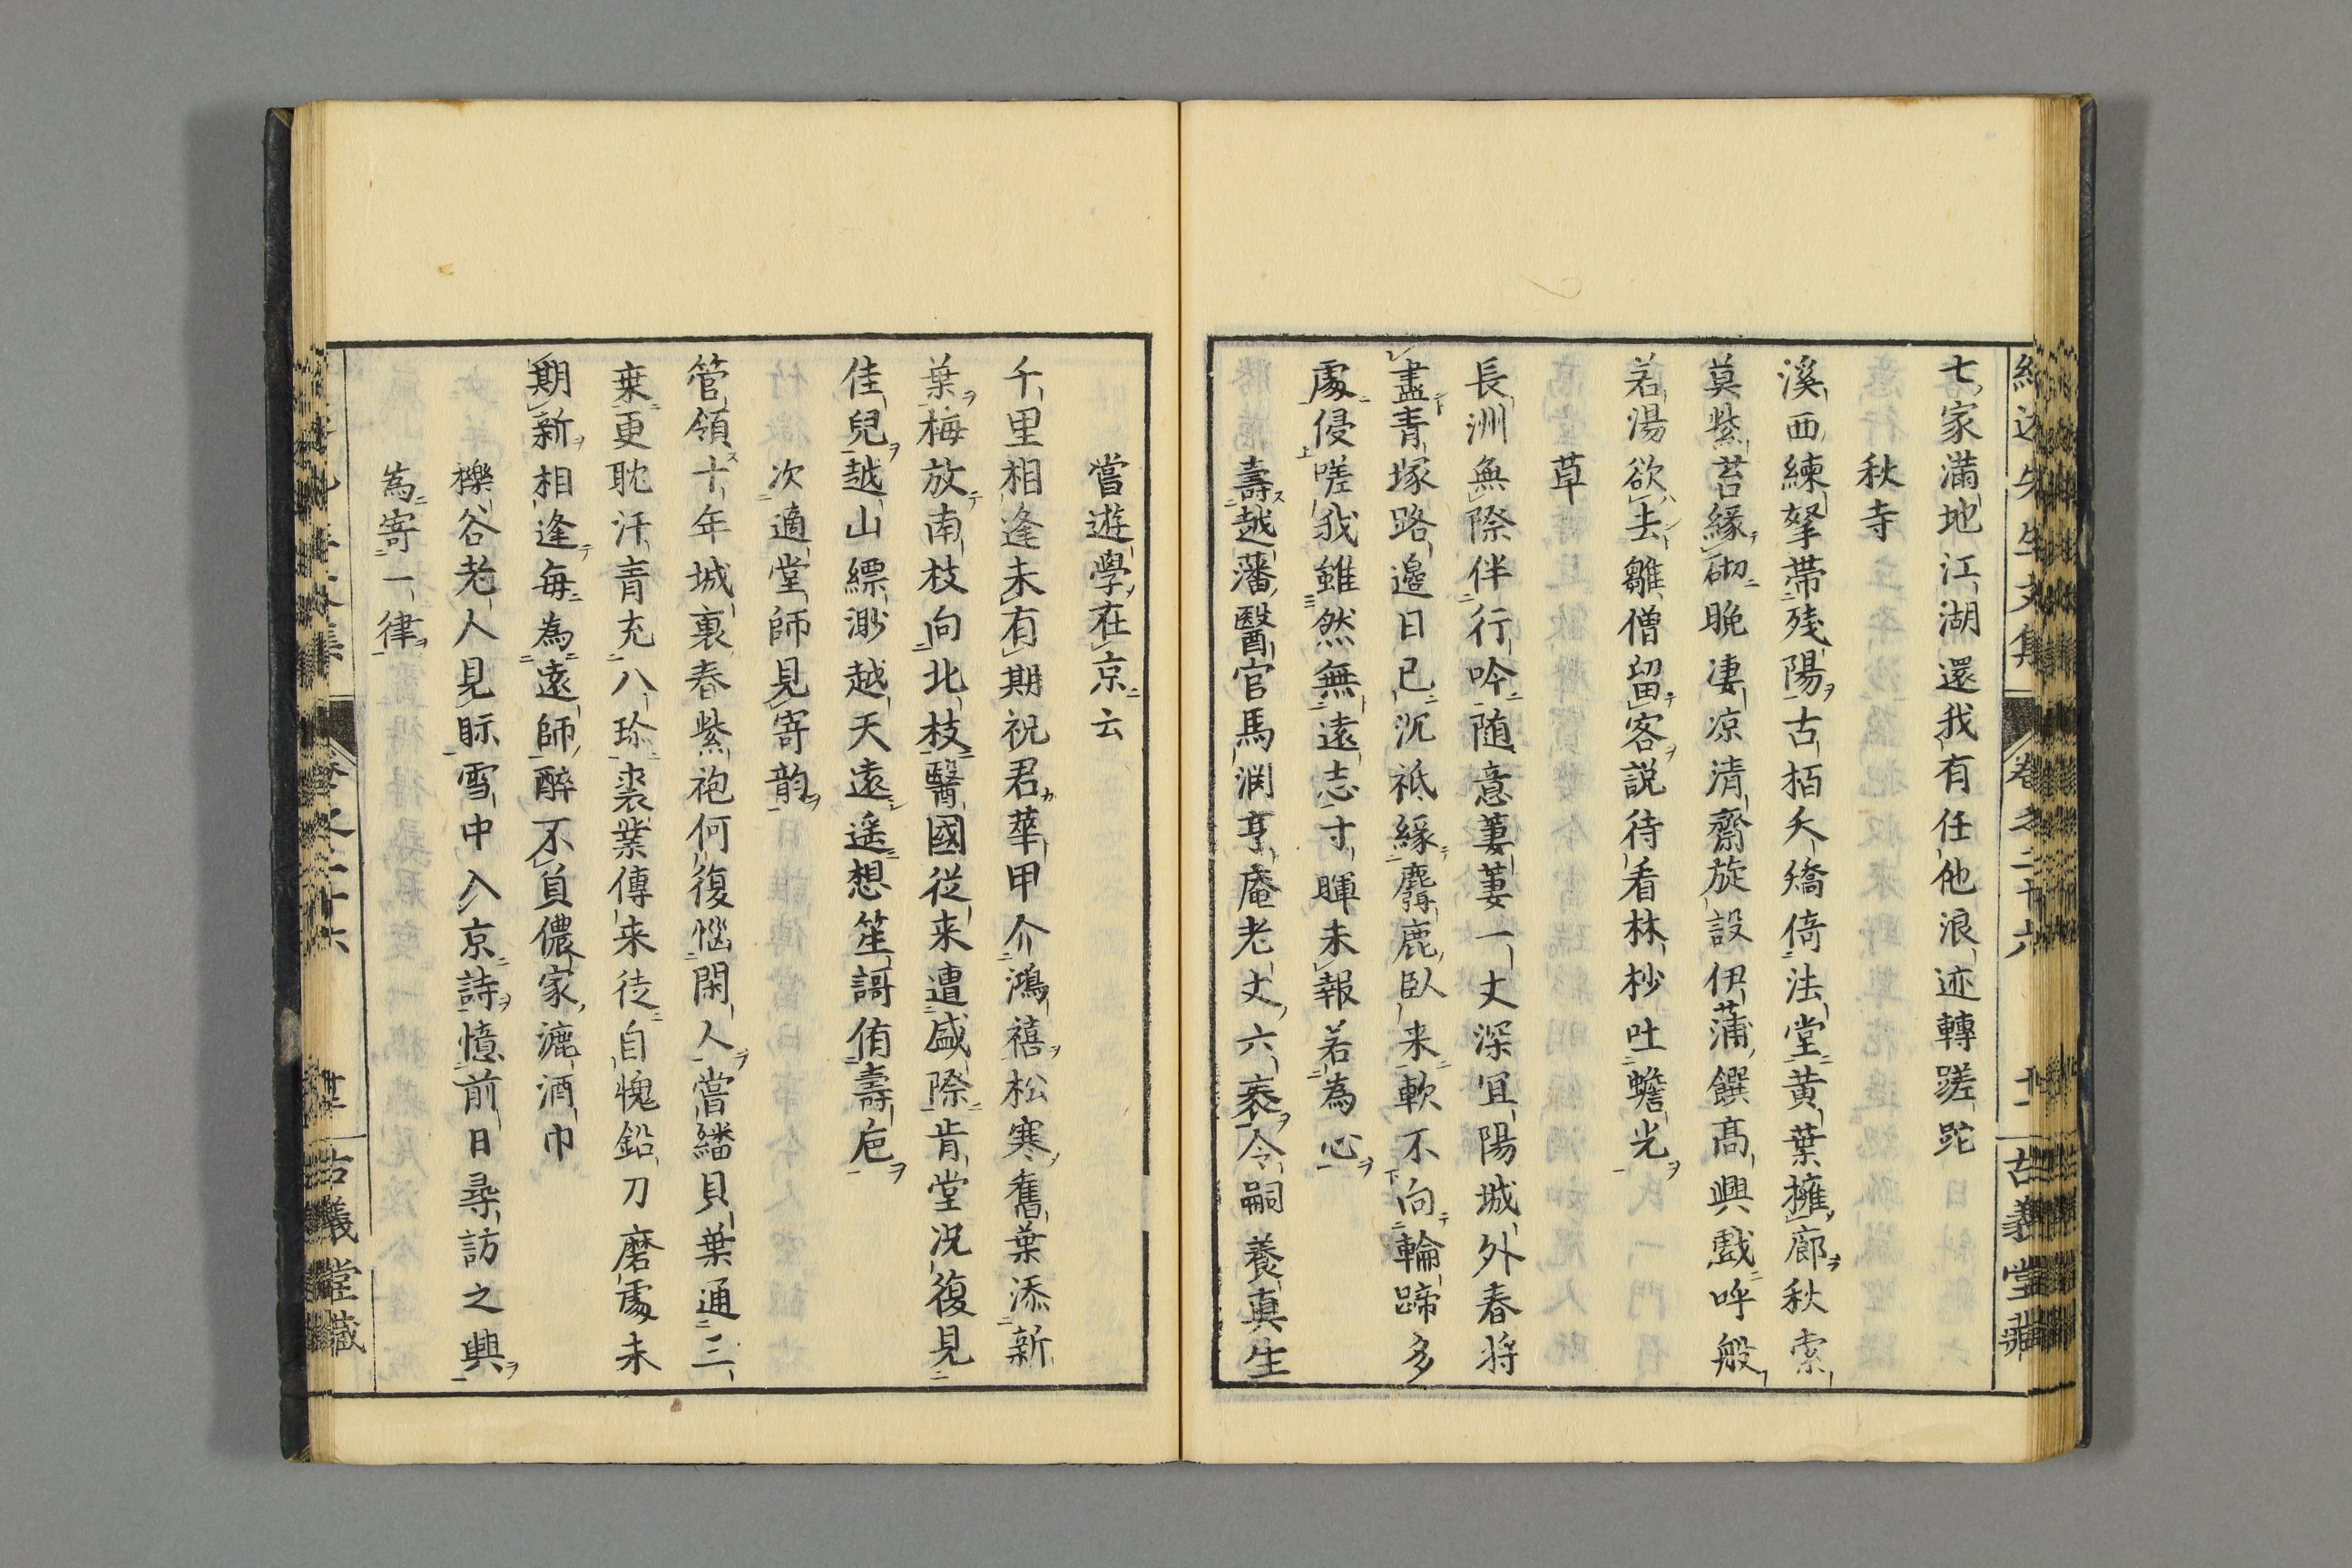 七家滿地江湖還我有任他浪迹轉蹉跎
秋寺
溪西練拏帶殘陽古栢夭矯倚法堂黄葉擁廊秋索
莫紫苔緣砌晚凄凉清齋旋設伊蒲饌髙興戲呼般
若湯欲去雛僧留客説待看林杪吐蟾光
草
長洲無際伴行吟随意萋萋一丈深冝陽城外春將
盡青塚路邉日已沉祗緣麝鹿臥来軟不向輪蹄多
處侵嗟我雖然無遠志寸暉未報若為心
壽越藩醫官馬渕亨庵老丈六袠令嗣養真生
嘗遊學在京云
千里相逢未有期祝君華甲介鴻禧松寒舊葉添新
葉梅放南枝向北枝醫國從来遭盛際肯堂况復見
佳兒越山縹渺越天遠遥想笙謌侑壽巵
次適堂師見寄韵
管領十年城裏春紫袍何復惱閑人嘗繙貝葉通三
乗更耽汗青充八珍裘業傳来徒自愧鉛刀磨處未
期新相逢毎為遠師醉不負儂家漉酒巾
櫟谷老人見眎雪中入京詩憶前日尋訪之興
為寄一律
先生文集
卷之二十六
古義堂藏